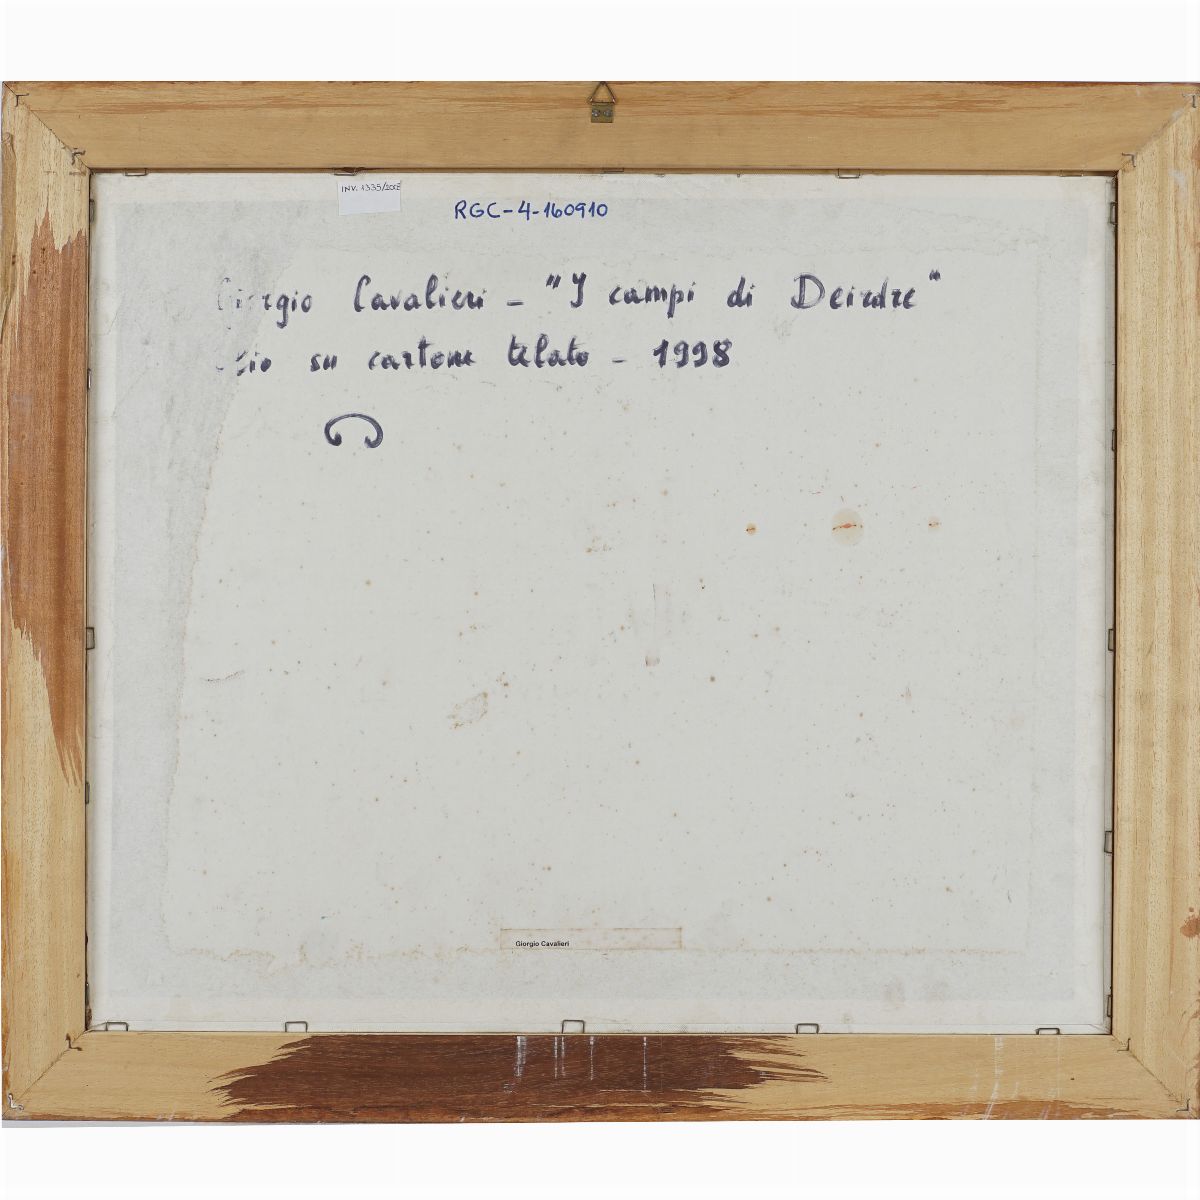 INV. 1335/2008
RGC-4-160910
Giorgio Cavalieri - "I campi di Deirdre"
olio su cartone telato - 1998
Giorgio Cavalieri